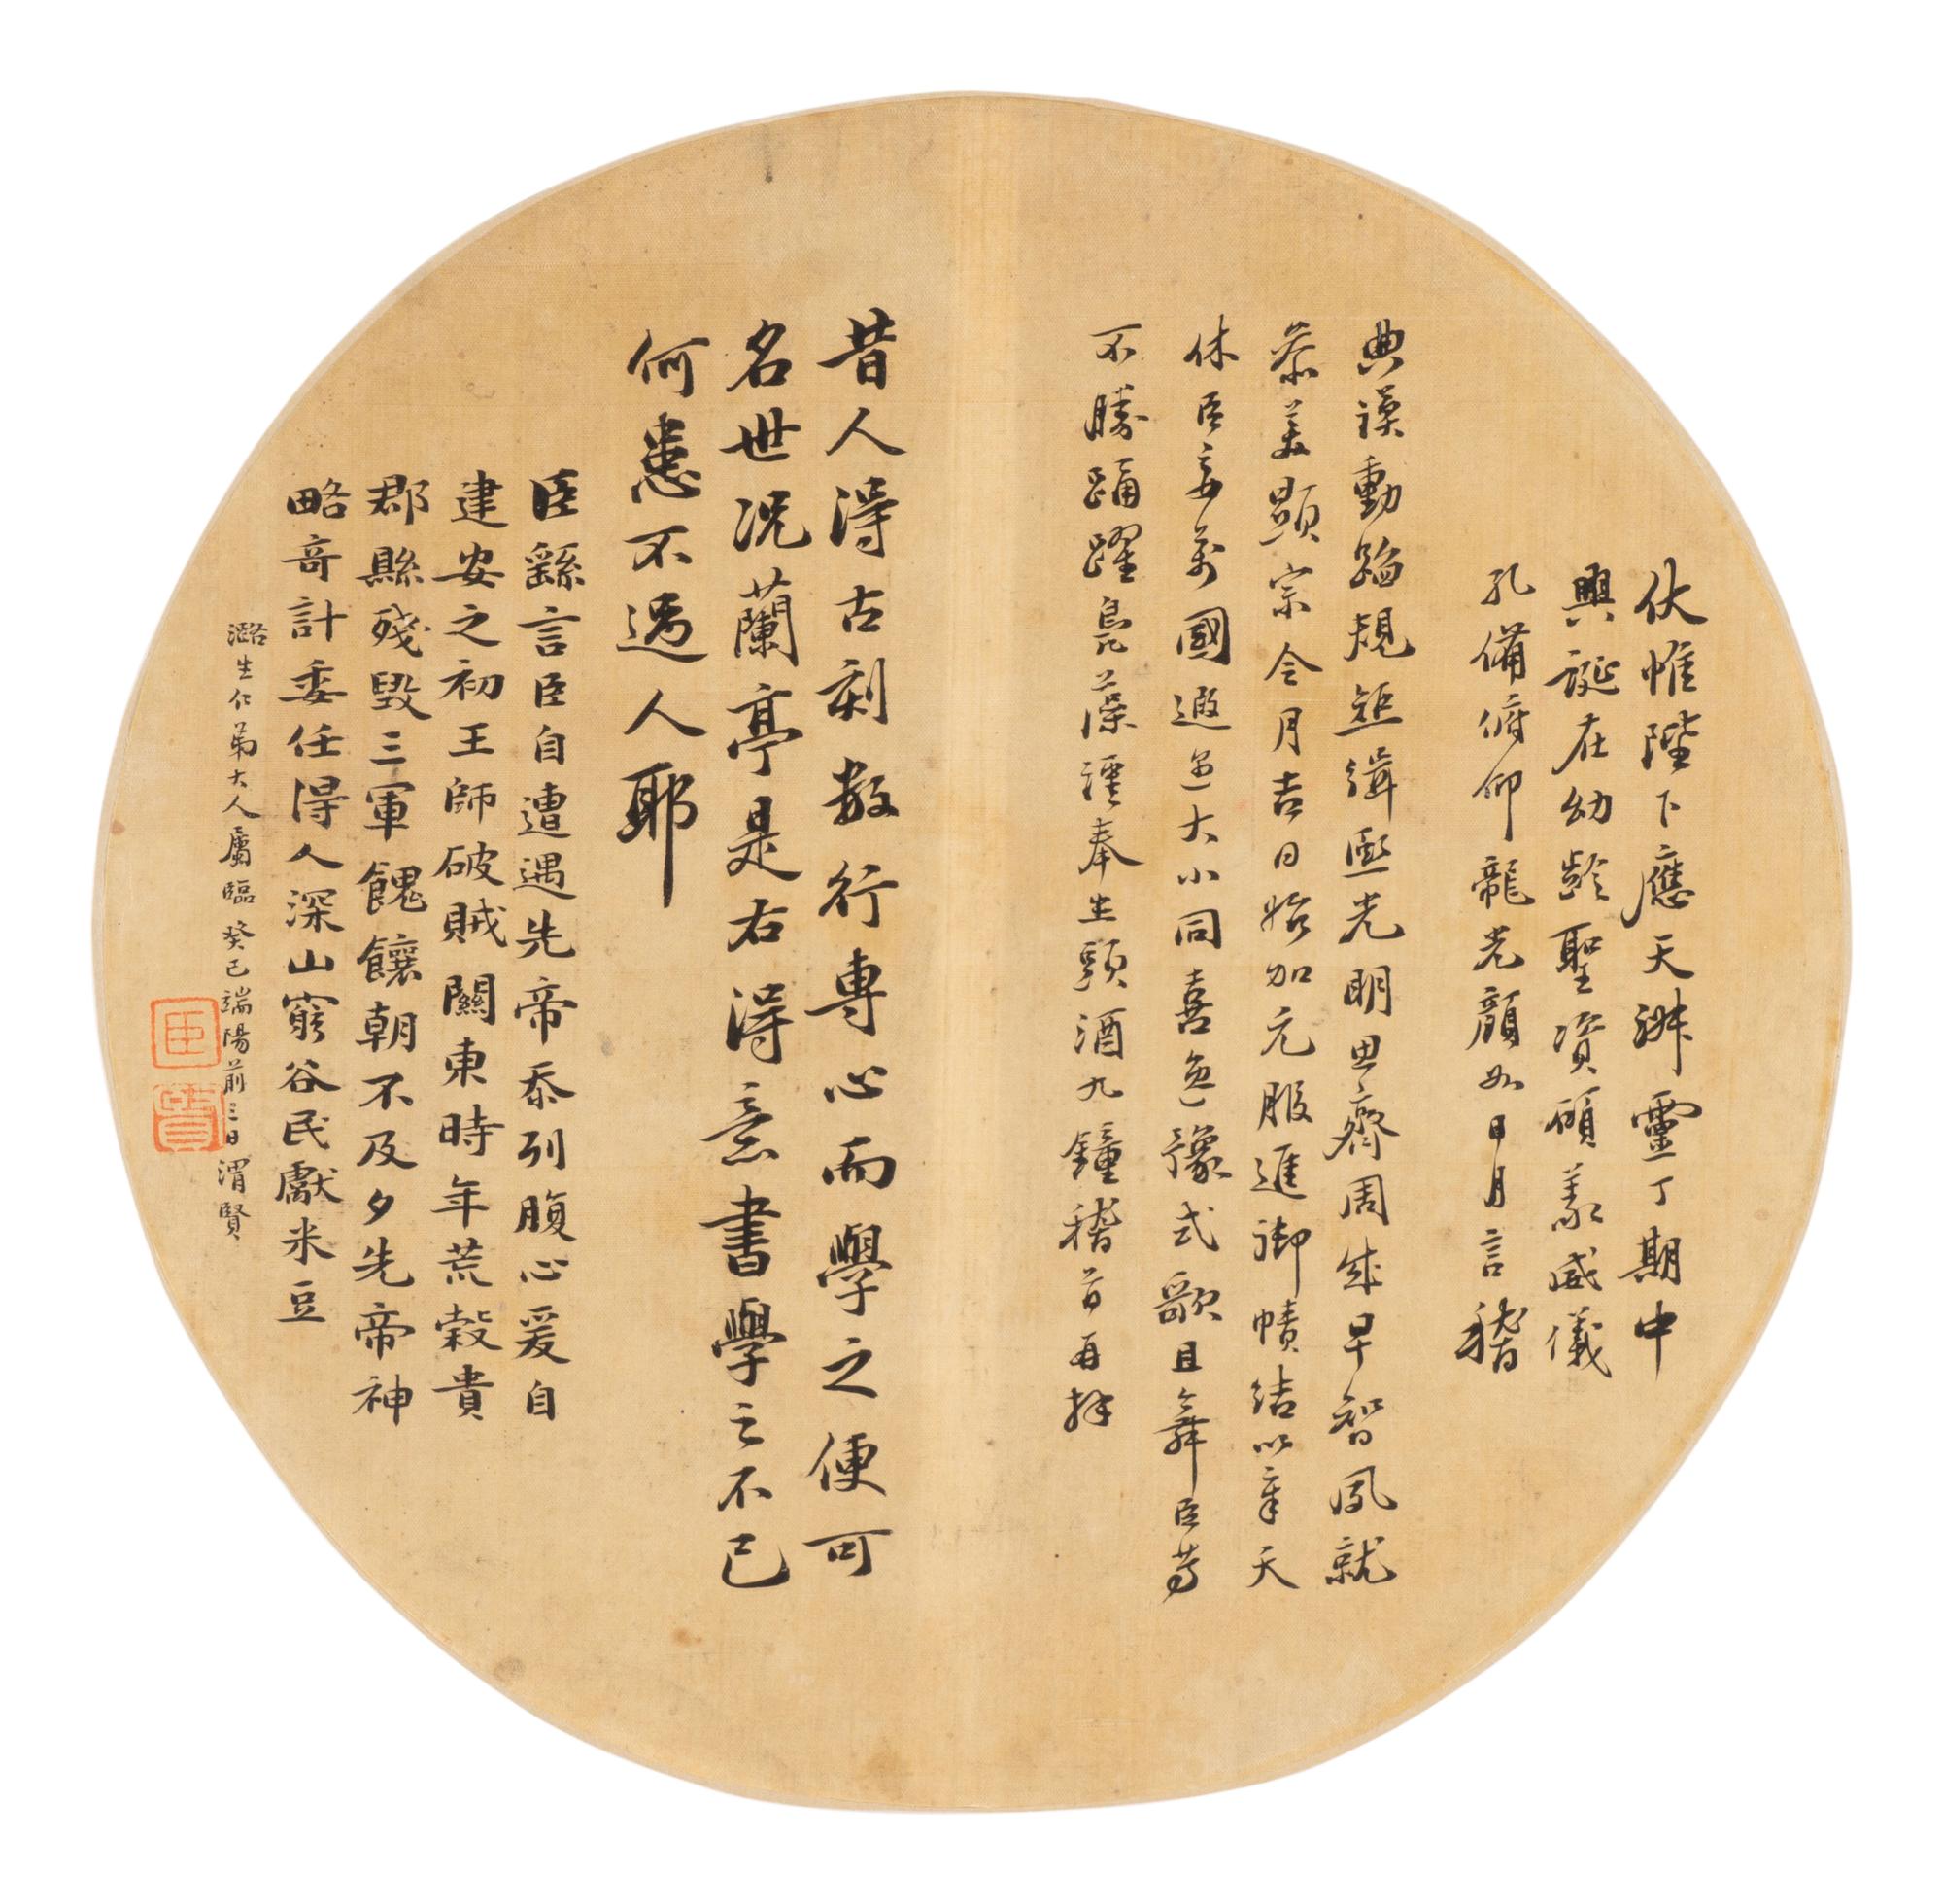 伏惟陛下應天淋靈丁期中
興誕在幼齡聖資碩義威儀
孔備俯仰龍光顏如日月言稽
典謨動蹈規矩緝熙光明思齊周成早智夙就
恭美顯宗令月吉日始加元服進御幘結以章天
休臣妾萬國遐邇大小同喜逸豫式歌且舞臣等
不勝踊躍鳧藻謹奉生頭酒九鐘稽首再拜
昔人得古刻數行專心而學之便可
名世況蘭亭是右得意書學之不已
何患不過人耶
臣繇言臣自遭遇先帝忝列腹心爰自
建安之初王師破賊關東時年荒穀貴
郡縣殘毀三軍餽饟朝不及夕先帝神
略奇計委任得人深山窮谷民獻米豆
潞生仁弟大人屬臨 癸巳端陽前三日渭賢